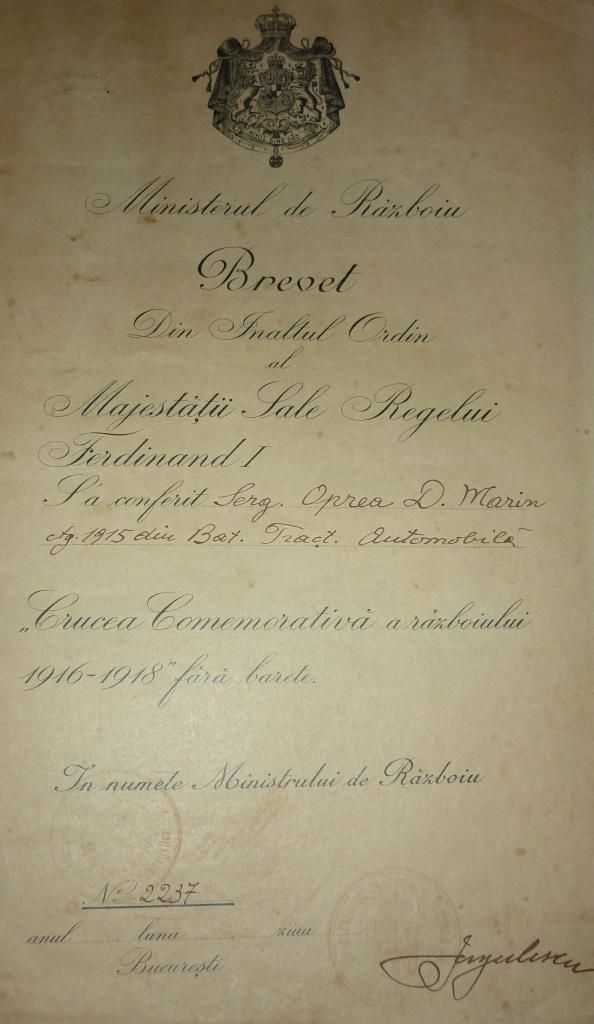 NIHIL SINE DEO
Ministerul de Războiu
Brevet
Din Inaltul Ordin
al
Majestății Sale Regelui
Ferdinand I
S'a conferit Serg. Oprea D. Marin
ctg. 1915 din Bat. Tracț. Automobilă
„Crucea Comemorativă a războiului
1916-1918" fără barete.
In numele Ministrului de Războiu
No 2237
anul luna ziua
București